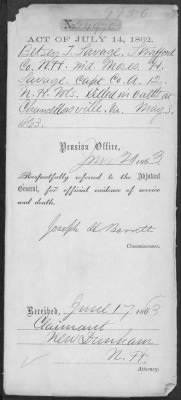 No 24976
ACT OF JULY 14, 1862.
Betsey J. Savage, Strafford
Co. N.H. Wid. Moses H.
Savage. Capt Co. A. 12-
N.H. Vols. Killed in battle at
Chancellorsville. Va. May 3,
1863.
Pension Office,
June 29 1863
Respectfully referred to the Adjutant
General, for official evidence of service
and death.
Joseph H Barrett
Commissioner.
Received, June 17, 1863
Claimant
New Durham
N. H.
Attorney.